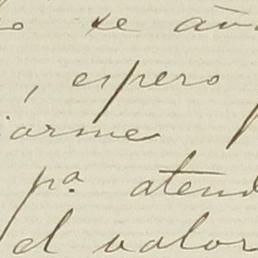 se
, espero
arme
pa. atend
el valor